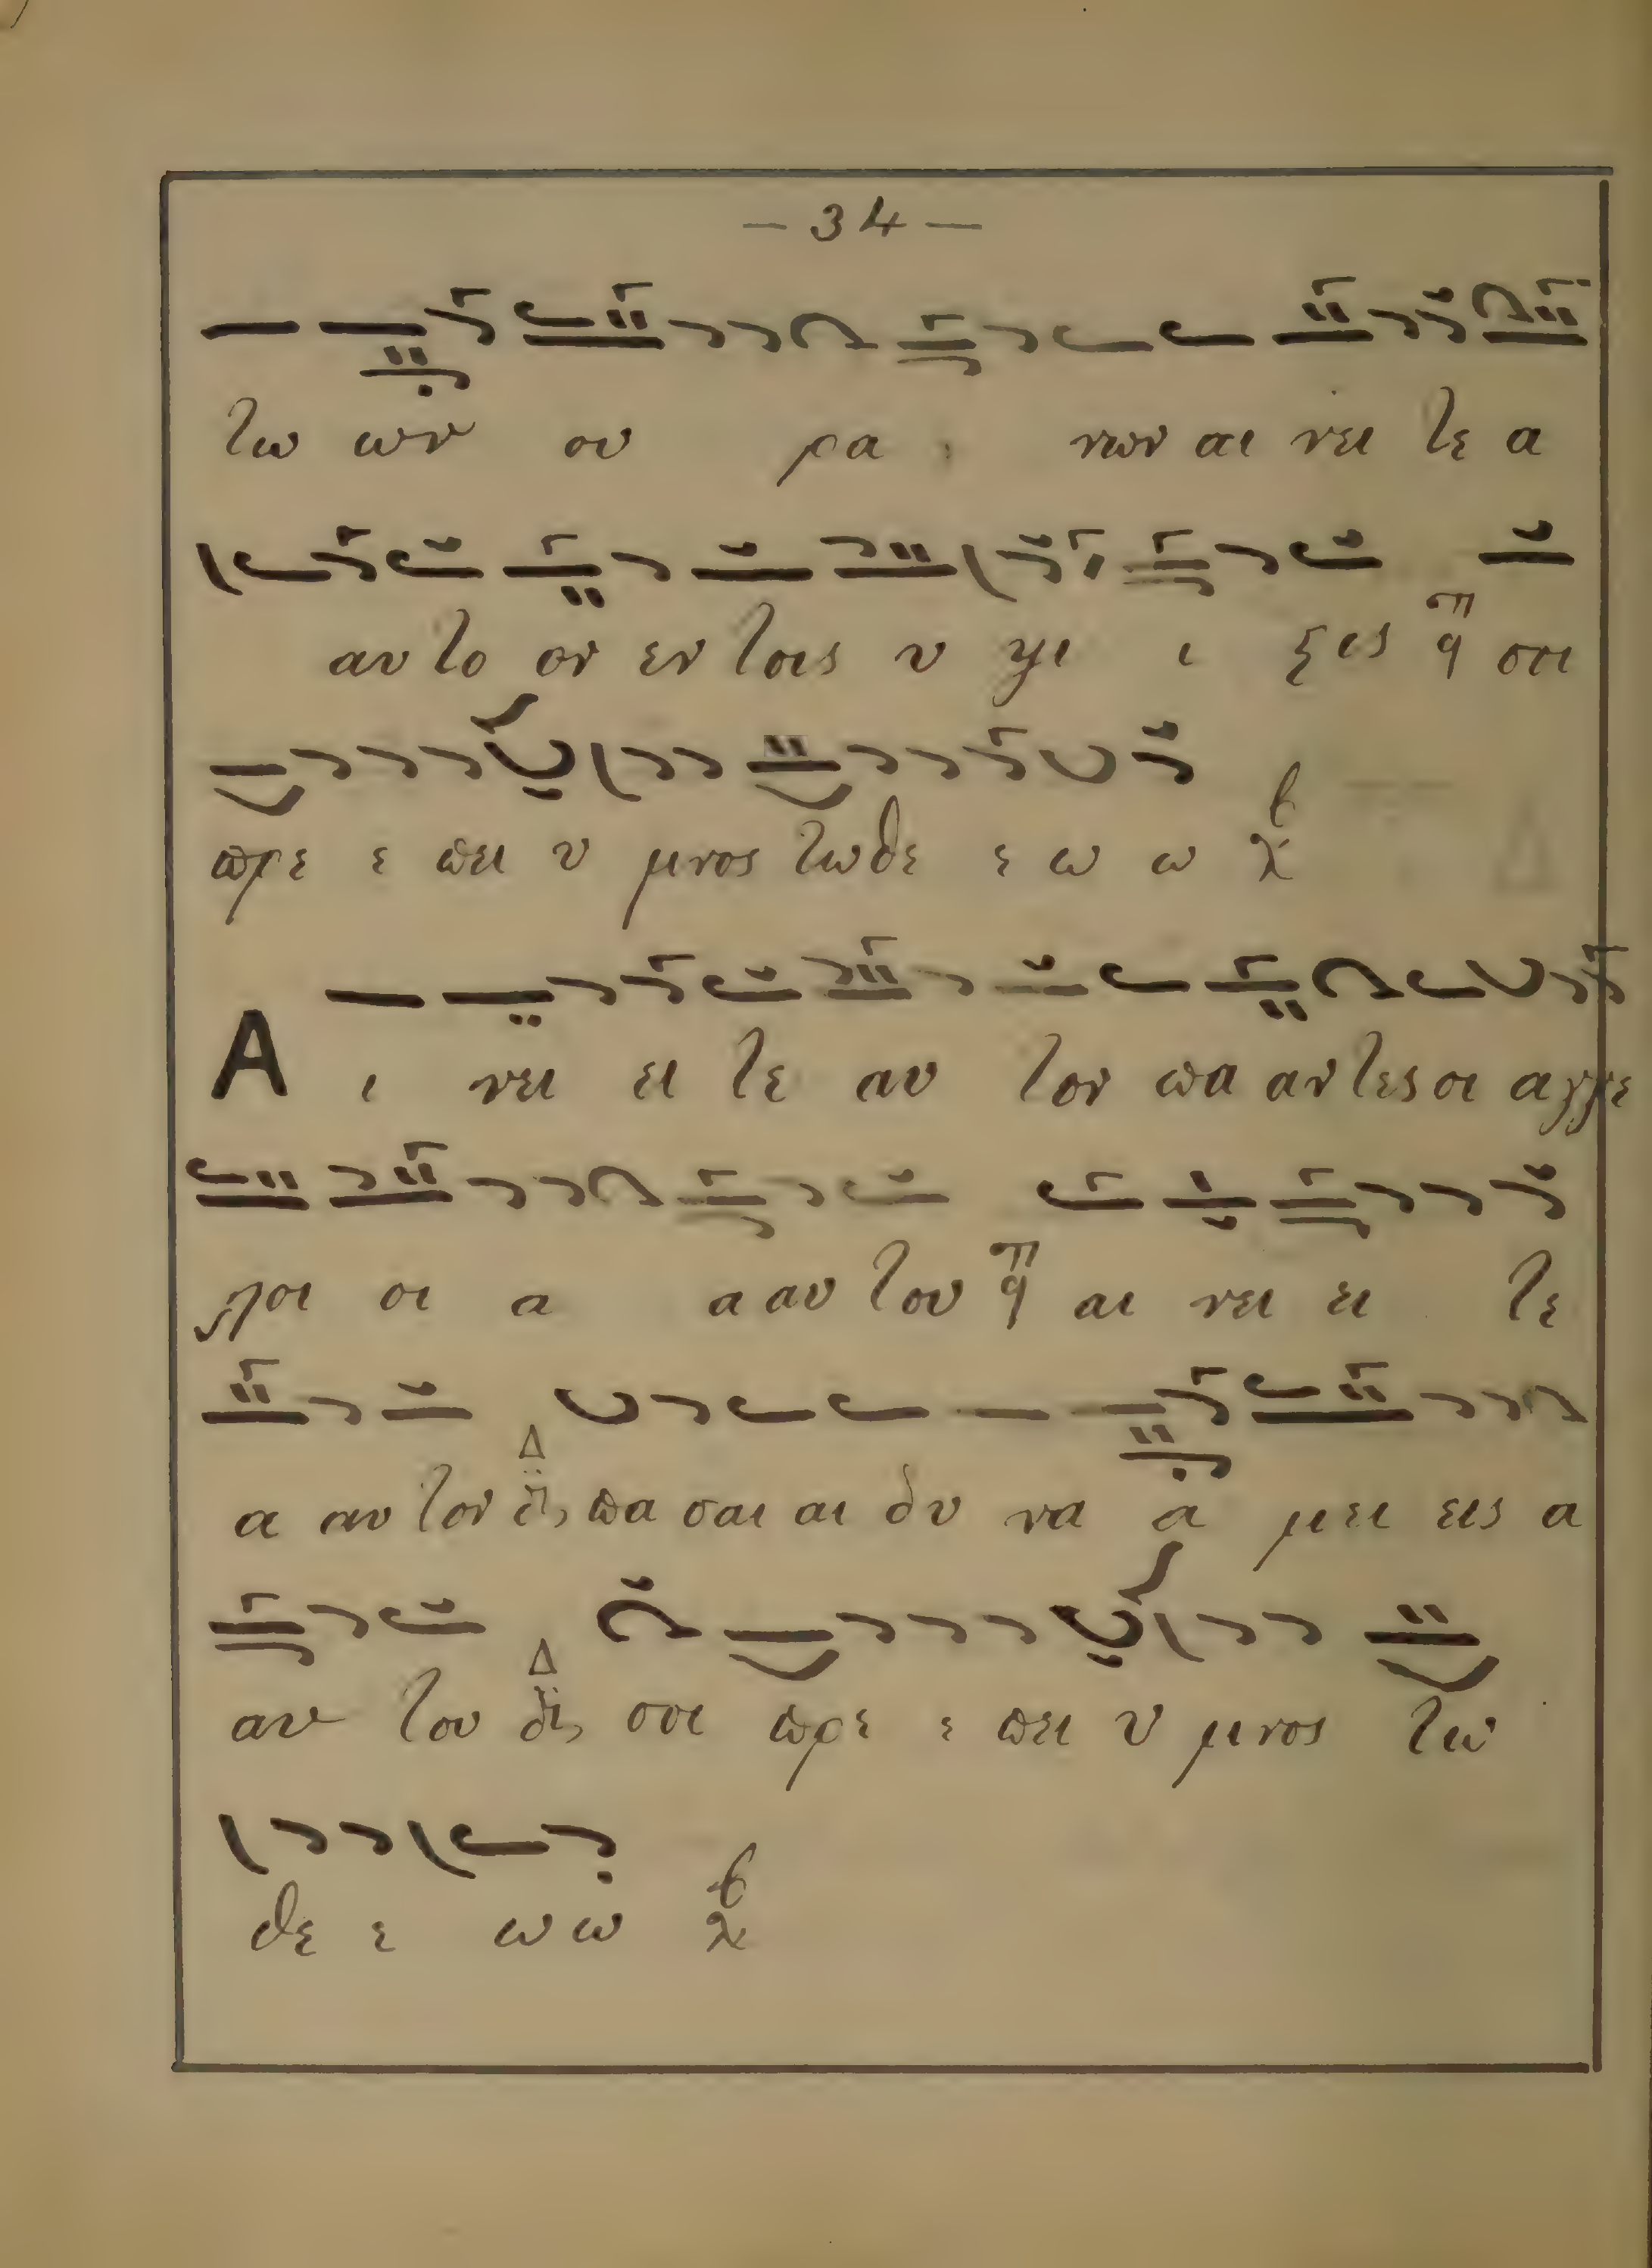 — 34 —
τω ων ου ρα νων αι νει τε α
αυ το ον εν τοις υ ψι ι ςις π q σοι
πρε ε πει υ μνος τω θε ε ω ω
Α ι νει ει τε αυ τον πα αν τες οι αγγε
λοι οι α α αυ του π q αι νει ει τε
α αυ τον Δ δι πα σαι αι δυ να α μει εις α
αυ του Δ δι σοι πρε ε πει υ μνος τω
θε ε ω ω